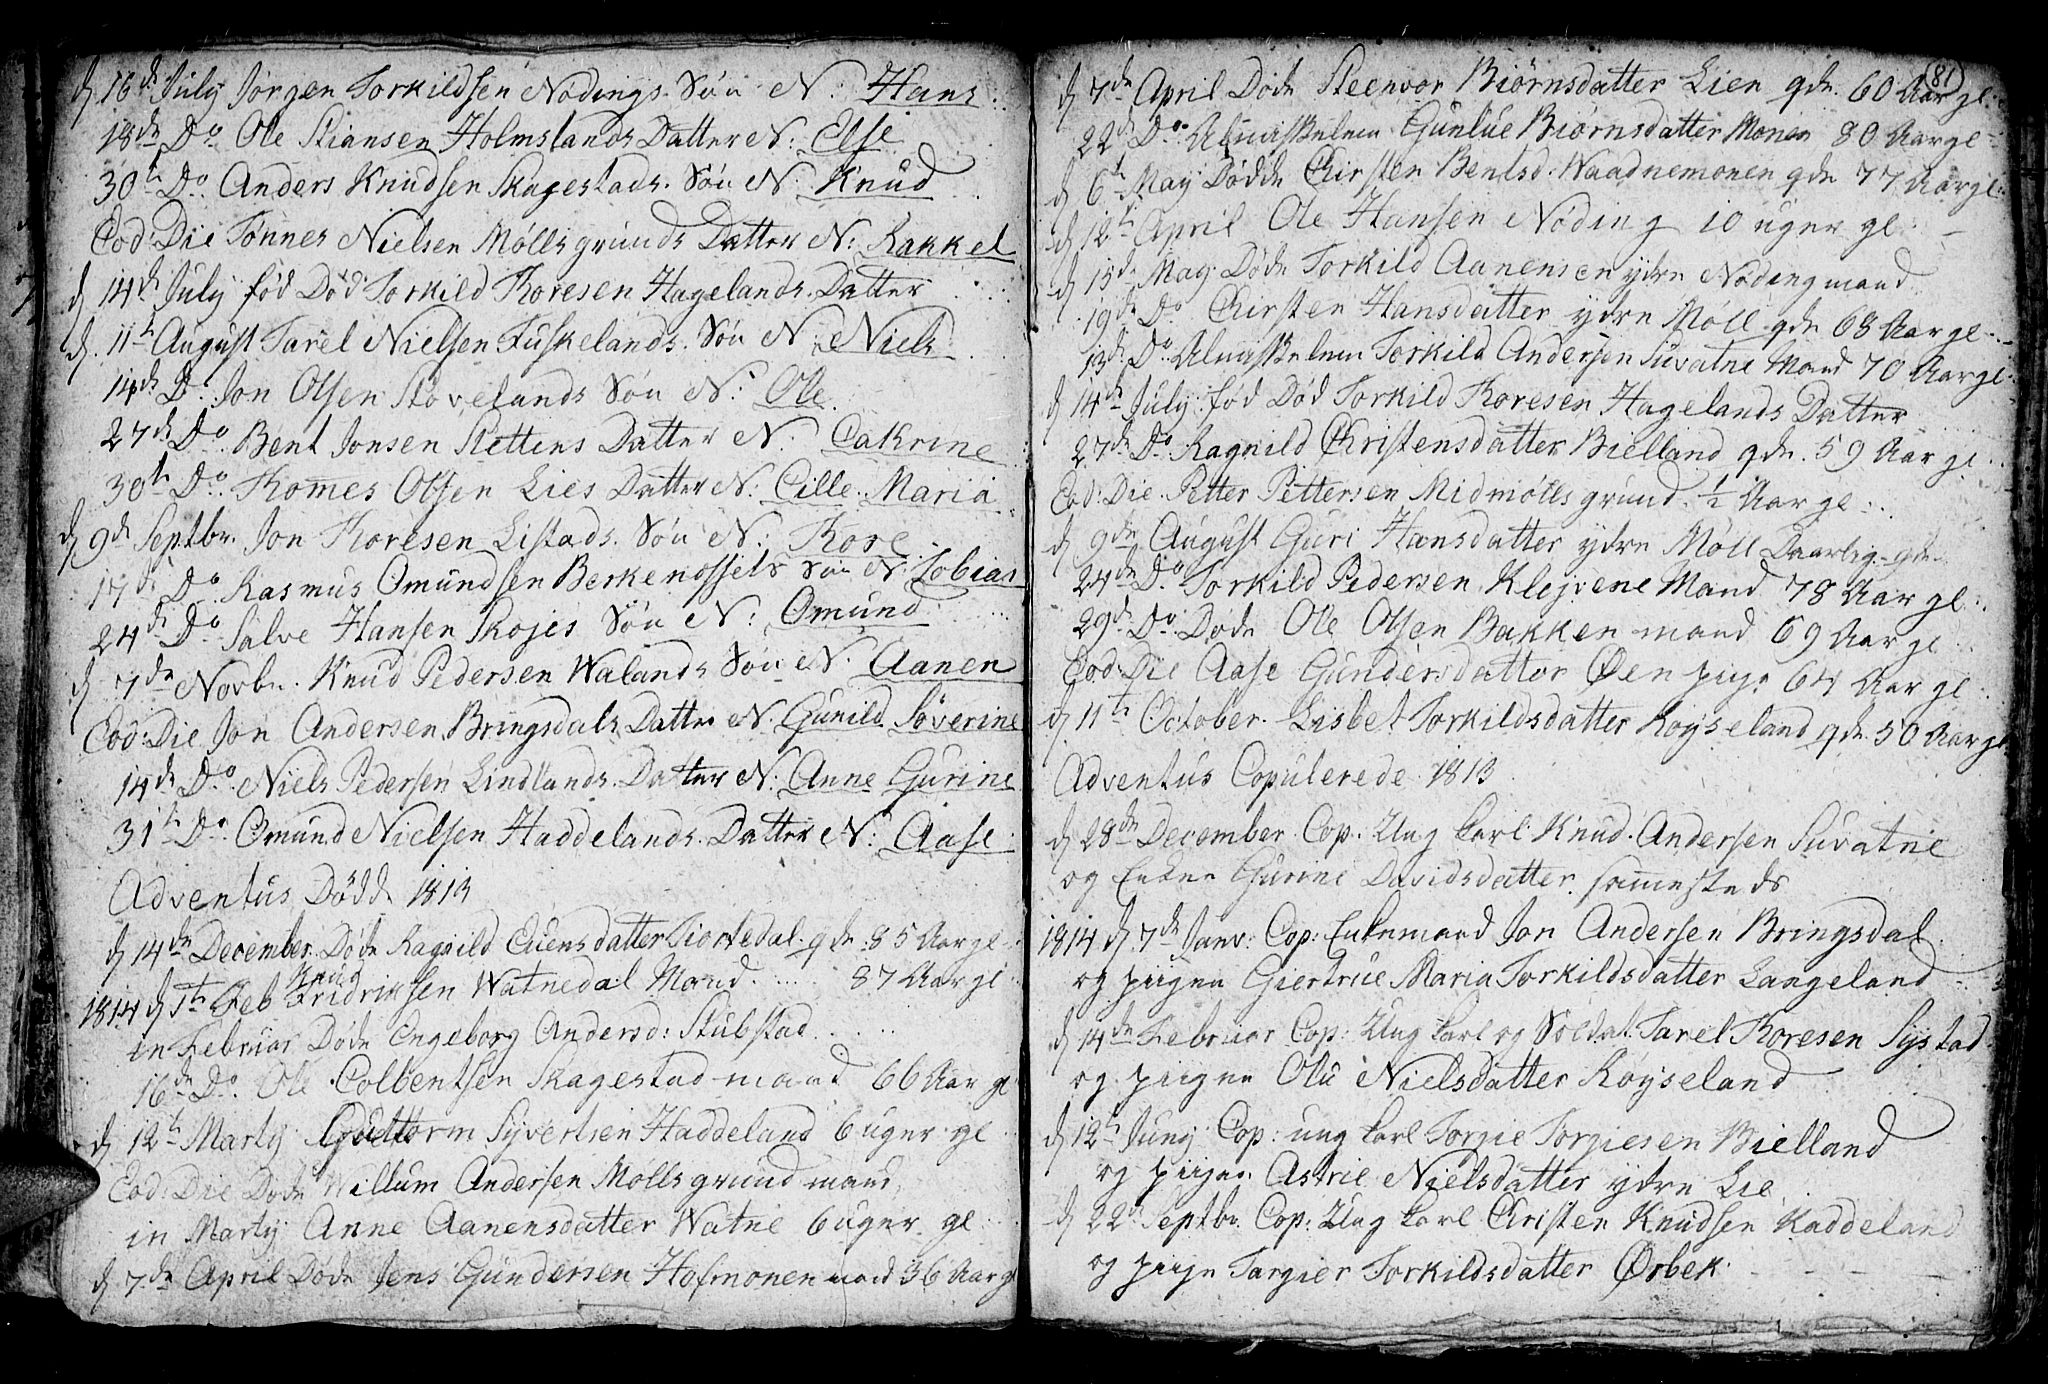 d 16de July Jørgen Torkildsen Nødings Søn N: Hans
18de Do Ole Stiansen Holmslands Datter N: Else
30th Do Anders Knudsen Skagestads Søn N. Knud
Eod: Die Tønnes Nielsen Møllsgrunds Datter N: Rakkel
d 14de July fød Død Torkild Thoresen Hagelands Datter
d. 11th August Tarel Nielsen Fuskelands Søn N. Niels
14de Do Jon Olsen Støvelands Søn N: Ole
27de Do Bent Jonsen Slettens Datter N. Cathrine
30th Do Thomes Olsen Lies Datter N: Cille Maria
d 9de Septbr. Jon Thoresen Listads Søn N: Thore
17de Do Rasmus Omundsen Berkenossels Søn N. Tobias
24de Do Salve Hansen Skojes Søn N: Omund
d 7de Novbr. Knud Pedersen Walands Søn N. Aanen
Eod: Die Jon Andersen Bringsdals Datter N. Gunild Søverine
14de Do Niels Pedersen Lindlands Datter N: Anne Gurine
31th Do Omund Nielsen Haddelands Datter N: Aase
Adventus Dødde 1813
d 14de December Døde Ragnild Evensdatter qde 85 Aar gl
Knud
1814 d 1th Feb Fridriksen Watnedal Mand 87 Aar gl
in Februar Døde Engeborg Andersd: Stubstad
16de Do Ole Colbentsen Skagestad mand 66 Aar gl
d 12th Marty Guttorm Syvertsen Haddeland 6 uger gl
Eod: Die Døde Willum Andersen Møllsgrund mand
in Marty Anne Aanensdatter Watne 6 uger gl
d 7de April Døde Jens Gundersen Hofmonen mand 36 Aar gl
(81)
d 7de April Døde Steenvor Biørnsdatter Lien qde 60 Aar gl
22de Do Gunlue Biørnsdatter Monen 80 Aar gl
d 6th May Dødde Chirsten Bentsd. Waadnemonen qde 77 Aar gl
d 12th April Ole Hansen Nøding 10 uger gl
d 15de May Døde Torkild Aanensen ydre Nøding mand
19de Do Chirsten Hansdatter ydre Møll qde 68 Aar gl
13de Do Torkild Andersen Suvatne Mand 70 Aar gl
d 14de July fød Død Torkild Thoresen Hagelands Datter
27de Do Ragnild Christensdatter Bielland qde 59 Aar gl
Eod: Die Petter Pettersen Midmølls grund ½ Aar gl
d 9de August Guri Hansdatter ydre Møll Daarlig qde
24de Do Torkild Pedersen Klejvene Mand 78 Aar gl
29de Do Døde Ole Olsen Bakken mand 69 Aar gl
Eod: Die Aase Gundersdatter Øen pige 64 Aar gl
d 11th October Lisbet Torkildsdatter Røyseland qde 50 Aar gl
Adventus Copulerede 1813
d 28de December Cop. Ung karl Knud Andersen Suvatne
og Enken Gurine Davidsdatter sammesteds
1814 d 7de Janv: Cop: Enkemand Jon Andersen Bringsdal
og piigen Giertrue Maria Torkildsdatter Langeland
d 14de Februar Cop: Ung karl og Soldat Tarel Thoresen Systad
og piigen Olu Nielsdatter Røyseland
d 12th Juny Cop: ung karl Torgie Torgiesen Bielland
og piigen Astrie Nielsdatter ydre Lie
d 22de Septbr. Cop: Ung karl Christen Knudsen Kaddeland
og piige Targier Torkildsdatter Ørbek